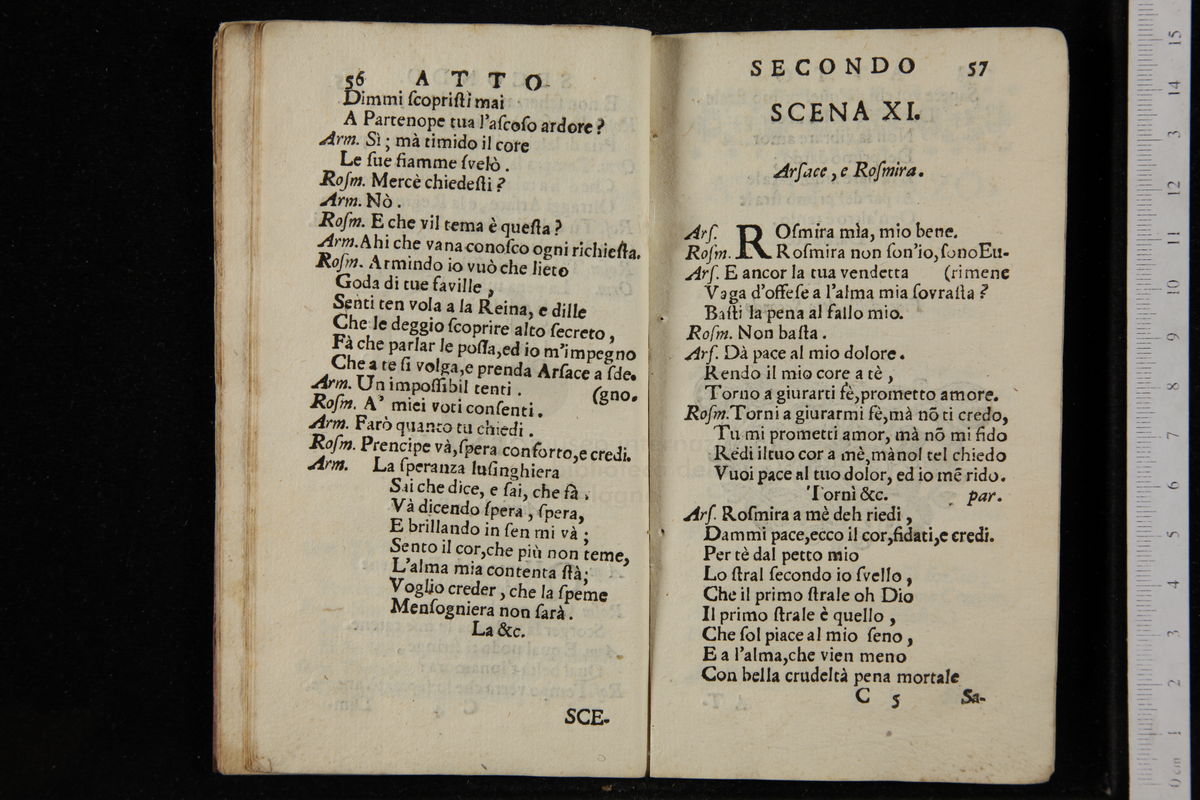 56 ATTO
Dimmi ſcopriſti mai
A Partenope tua l'aſcoſo ardore?
Arm. Sì; mà timido il core
Le ſue fiamme ſvelò.
Roſm. Mercè chiedeſti?
Arm. Nò.
Roſm. E che vil tema è queſta?
Arm. Ahi che vana conoſco ogni richieſta.
Roſm. Armindo io vuò che lieto
Goda di tue faville,
Senti ten vola a la Reina, e dille
Che le deggio ſcoprire alto ſecreto,
Fà che parlar le poſſa, ed io m'impegno
Che a te ſi volga, e prenda Arſace a ſde-
Arm. Un impoſſibil tenti. (gno.
Roſm. A' miei voti conſenti.
Arm. Farò quanto tu chiedi.
Roſm. Prencipe và, ſpera conforto, e credi.
Arm. La ſperanza luſinghiera
Sai che dice, e ſai, che fà,
Và dicendo ſpera, ſpera,
E brillando in ſen mi và;
Sento il cor, che più non teme,
L'alma mia contenta ſtà;
Voglio creder, che la ſpeme
Menſogniera non ſarà.
La &c.
SCE-
SECONDO 57
SCENA XI.
Arſace, e Roſmira.
Arſ. ROſmira mìa, mio bene.
Roſm. Roſmira non ſon'io, ſono Eu-
Arſ. E ancor la tua vendetta (rimene
Vaga d'offeſe a l'alma mia ſovraſta?
Baſti la pena al fallo mio.
Roſm. Non baſta.
Arſ. Dà pace al mio dolore.
Rendo il mio core a tè,
Torno a giurarti fè, prometto amore.
Roſm. Torni a giurarmi fè, mà nõ ti credo,
Tu mi prometti amor, mà nõ mi fido
Redi il tuo cor a mè, mà nol tel chiedo
Vuoi pace al tuo dolor, ed io mẽ rido.
Torni &c. par.
Arſ. Roſmira a mè deh riedi,
Dammi pace, ecco il cor, fidati, e credi.
Per tè dal petto mio
Lo ſtral ſecondo io ſvello,
Che il primo ſtrale oh Dio
Il primo ſtrale è quello,
Che ſol piace al mio ſeno,
E a l'alma, che vien meno
Con bella crudeltà pena mortale
C 5 Sa-